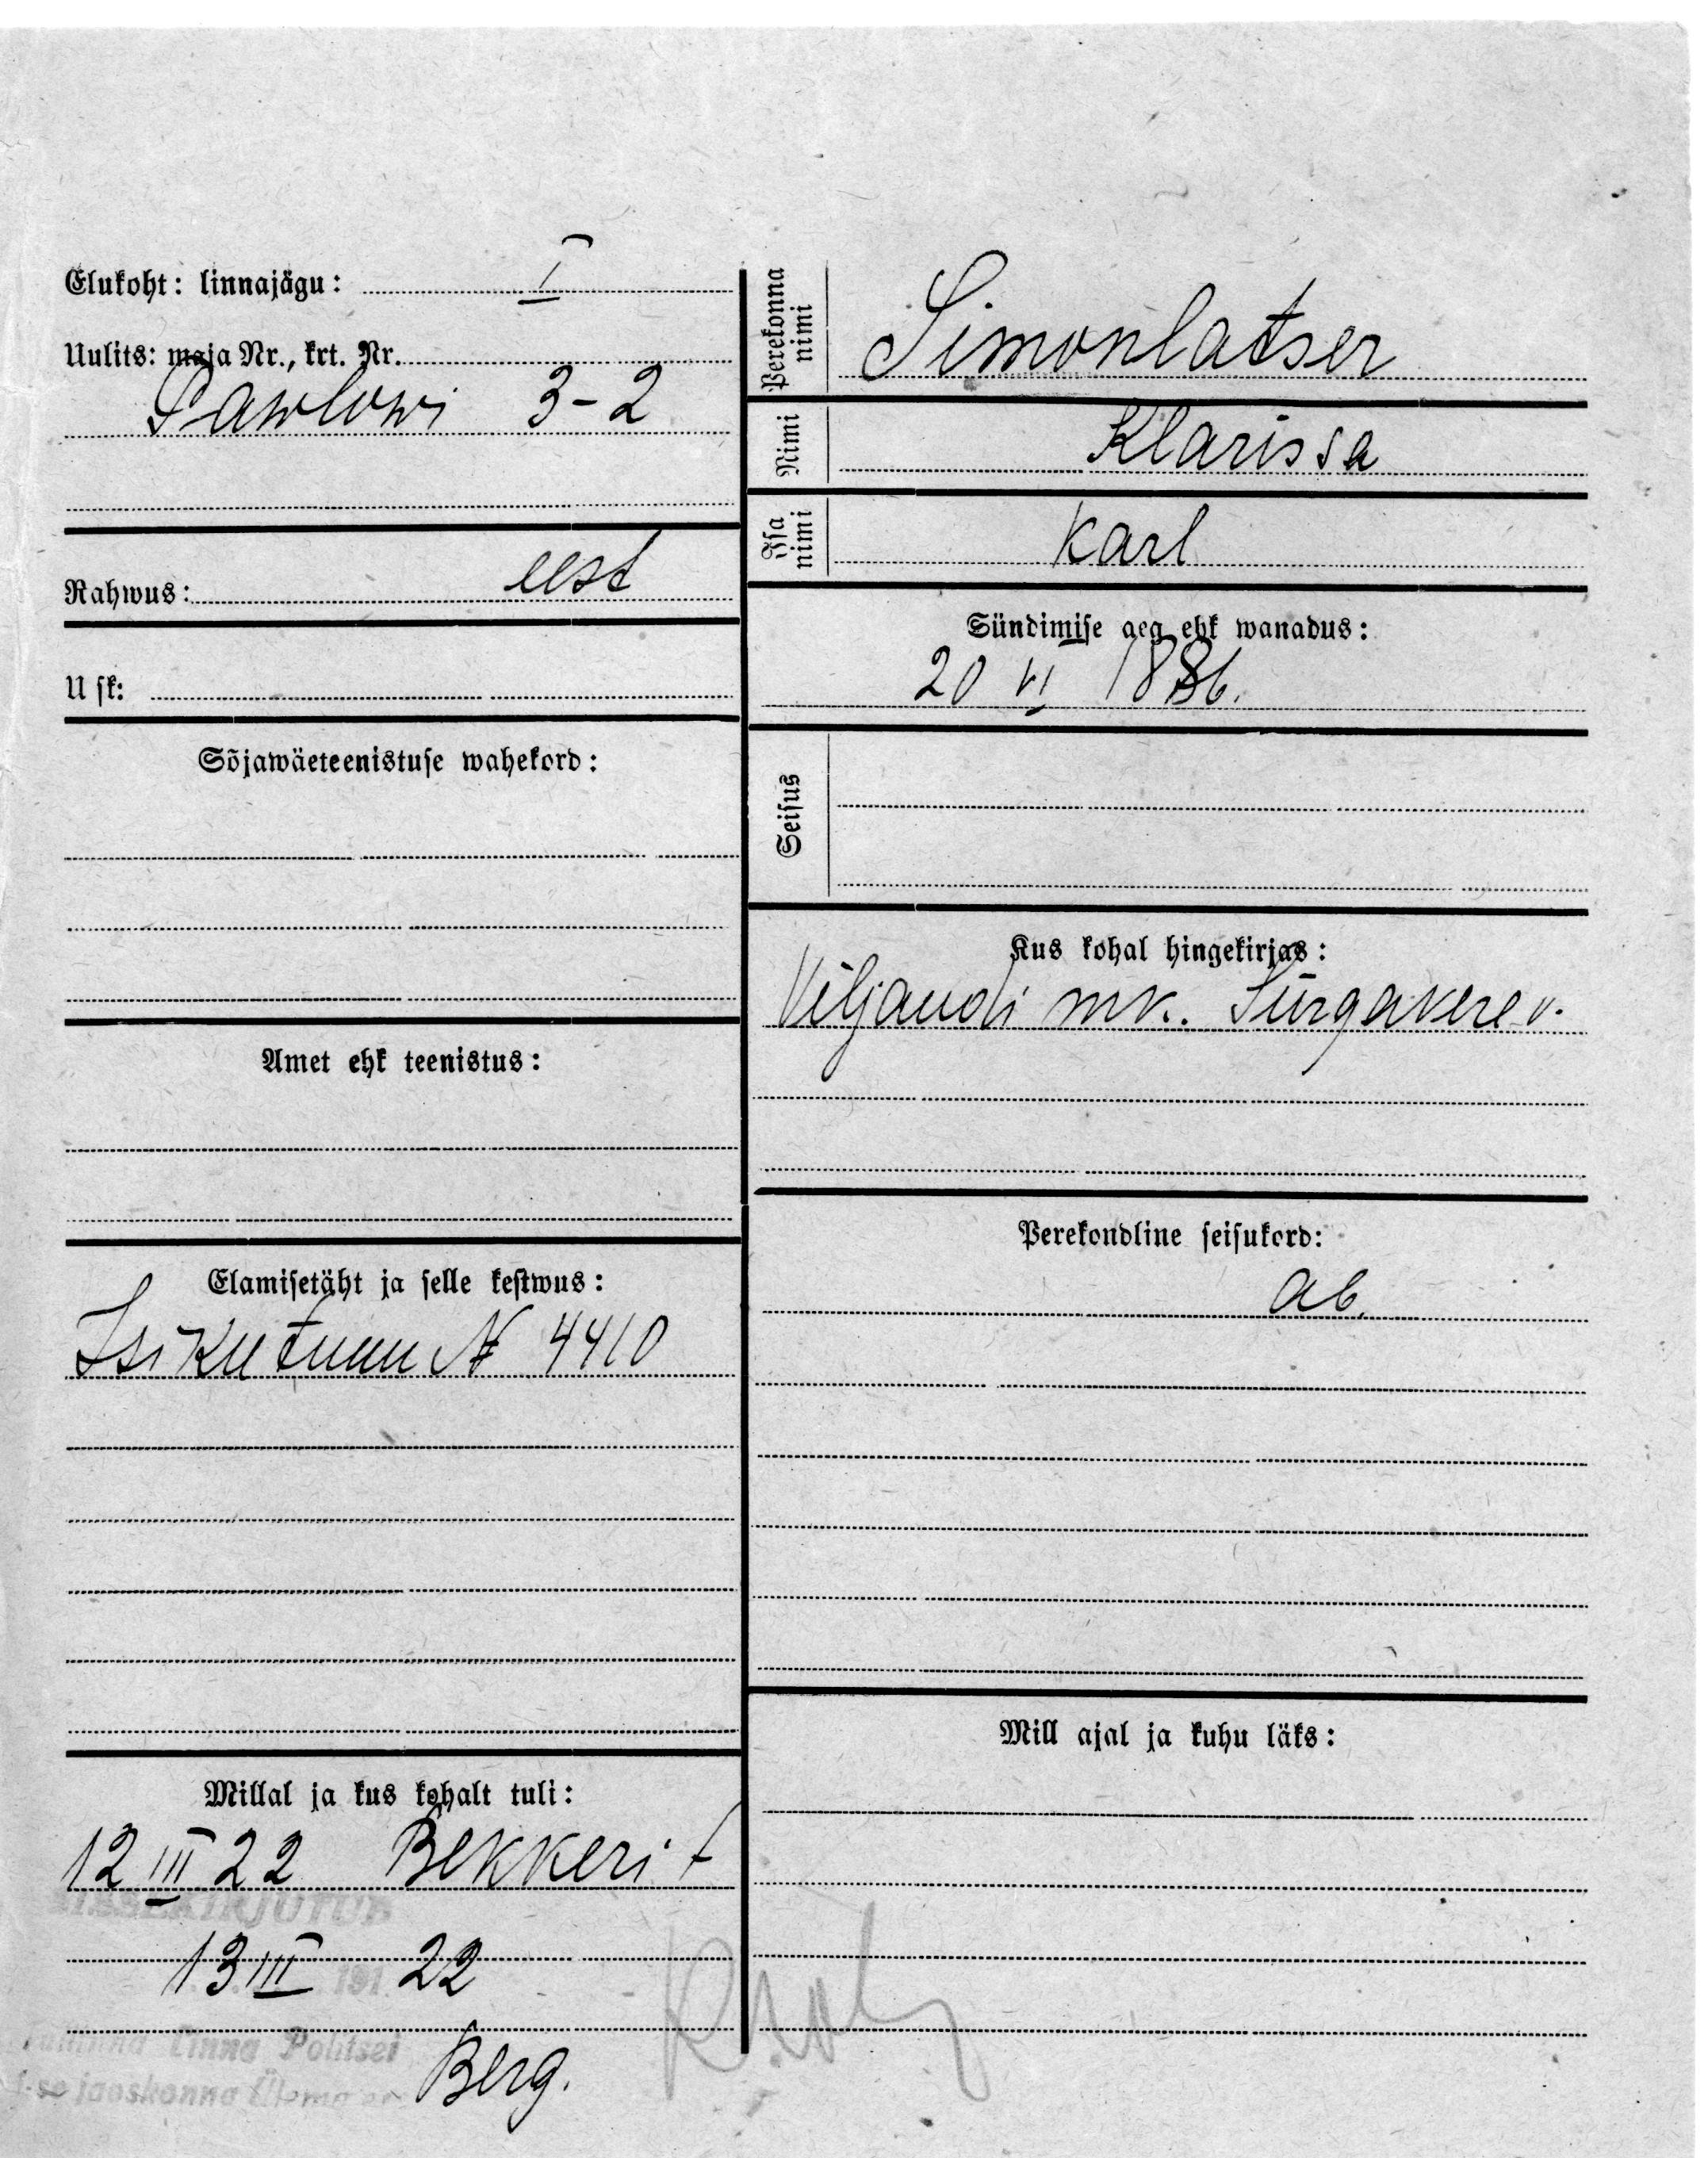 Elukoht: linnajägu: I
Uulits: maja Nr., krt. Nr.
Pawlowi 3-2
Rahwus: eest
Usk:
Sõjawäeteenistuse wahekord:
Amet ehk teenistus:
Elamisetäht ja selle kestwus:
Isikutunn № 4410
Millal ja kus kohalt tuli:
12 III 22 Bekkeri t
SISSEKIRJUTUD
13 III 22
191
Tallinna Linna Politsei
I-se jaoskonna Ülema
Berg.
Perekonna nimi
Simonlatser
Nimi
Klarissa
Isa nimi
Karl
Sündimise aeg ehk wanadus:
20 VI 1886.
Seisus
Kus kohal hingekirjas:
Viljandi mk. Sürgawere v.
Perekondline seisukord:
ab.
Mill ajal ja kuhu läks: